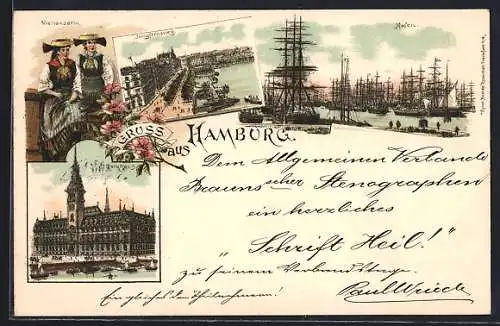 Vierländerin
Jungfernstieg
Hafen.
GRUSS
aus
HAMBURG.
Rathhaus
Dem Allgemeinen Verbande
Braunscher Stenographen
ein herzliches
„Schrift Heil!"
zu seinem Verbandstage.
Ein gleiches den Theilnehmern!
Paul Wrieck